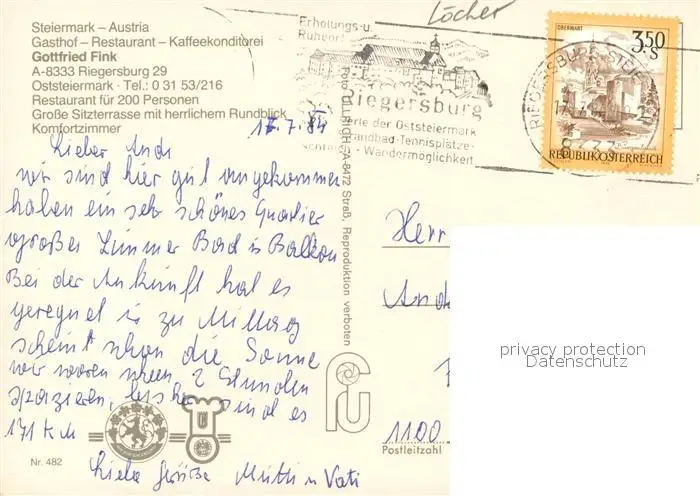 Steiermark – Austria
Gasthof – Restaurant – Kaffeekonditorei
Gottfried Fink
A-8333 Riegersburg 29
Oststeiermark · Tel.: 0 31 53/216
Restaurant für 200 Personen
Große Sitzterrasse mit herrlichem Rundblick
Komfortzimmer
Löcher
Erholungs-u.
Ruheort
Riegersburg
der Oststeiermark
Strandbad-Tennisplätze-
Wandermöglichkeit
OBERWART
3,50
S
REPUBLIK ÖSTERREICH
8333
17.7.84
Lieber Andi
wir sind hier gut angekommen
haben ein sehr schönes Quartier
großes Zimmer Bad u Balkon
Bei der Ankunft hat es
geregnet u zu Mittag
scheint schon die Sonne
wir waren schon 2 Stunden
spazieren, bisher sind es
171 km
Liebe Grüße Mutti u Vati
Nr. 482
A-8472 Straß, Reproduktion verboten
Herr
And
1100
Postleitzahl
privacy protection
Datenschutz